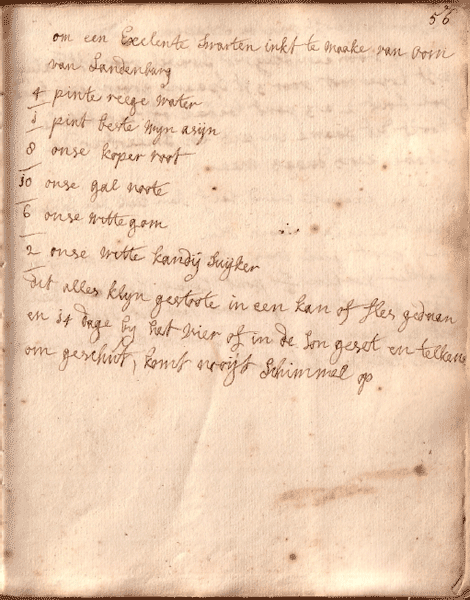 56
om een Exelente swarten inkt te maake van oom
van Landenburg
4 pinte reege water
1 pint beste wyn asyn
8 onse koper root
10 onse gal noote
6 onse witte gom
2 onse witte kandij suyker
dit alles klyn gestoote in een kan of fles gedaan
en 14 dage by het vier of in de son geset en telkens
om geschut, komt nooyt schimmel op